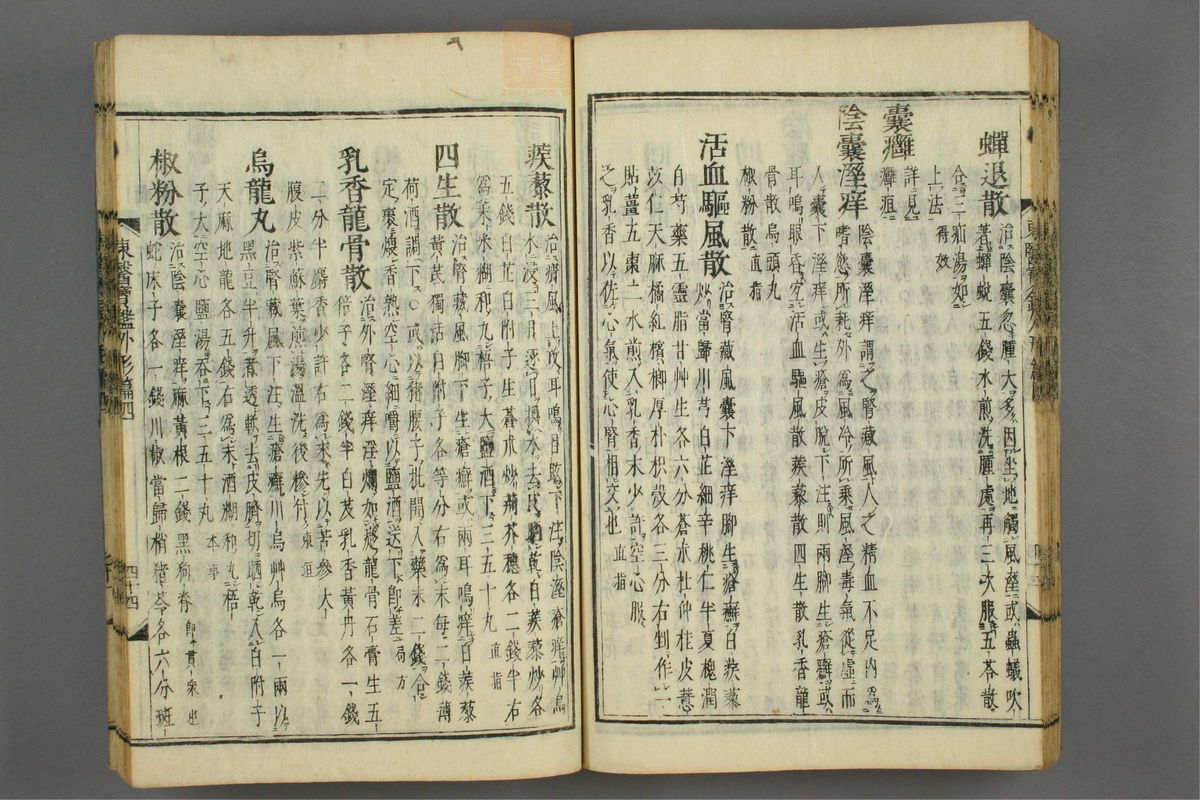 蟬退散 治陰囊忽腫大多因坐地觸風溼或蟲蟻吹
著蟬蛻五錢水煎洗腫處再三次服五苓散
合三疝湯如
上法 得效
囊癰 詳見
癰疽
陰囊溼痒 陰囊溼痒謂之腎藏風人之精血不足內爲
嗜慾所耗外爲風冷所乘風溼毒氣從虛而
人囊下溼痒或生瘡皮脫下注則兩脚生瘡癬或
耳鳴眼昏宜活血驅風散蒺藜散四生散乳香龍
骨散烏頭丸
椒粉散 直指
活血驅風散 治腎藏風囊下溼痒脚生瘡癬白蒺藜
炒當歸川芎白芷細辛桃仁半夏槐潤
白芍藥五靈脂甘艸生各六分蒼朮杜仲桂皮薏
苡仁天麻橘紅檳榔厚朴枳殼各三分右剉作一
貼薑五棗二水煎入乳香末少許空心服
之乳香以佐心氣使心腎相交也 直指
蒺藜散 治癩風上攻耳鳴目眩下注陰溼瘡痒艸烏
水浸三日逐日換水去皮晒乾白蒺藜炒各
五錢白芷白附子生蒼朮炒荊芥穗各二錢半右
爲末米糊和丸梧子大鹽酒下三五十丸 直指
四生散 治腎藏風脚下生瘡癬或兩耳鳴痒白蒺藜
黃芪獨活白附子各等分右爲末每二錢薄
荷酒調下○或以猪腰子批開入藥末二錢合
定裹煨香熟空心細嚼以鹽酒送下卽差 局方
乳香龍骨散 治外腎溼痒淫爛如瘡龍骨石膏生五
倍子各二錢半白芨乳香黃丹各一錢
二分半麝香少許右爲末先以苦參大
腹皮紫蘇葉煎湯溫洗後摻付 東垣
烏龍丸 治腎藏風下注生瘡癬川烏艸烏各一兩以
黑豆半升煮透軟去皮臍切晒乾入白附子
天麻地龍各五錢右爲末酒糊和丸梧
子大空心鹽湯呑下三五十丸 本事
椒粉散 治陰囊溼痒麻黃根二錢黑狗脊 卽貫衆也
蛇床子各一錢川椒當歸梢猪苓各六分斑
東醫寶鑑外形篇四
四十四